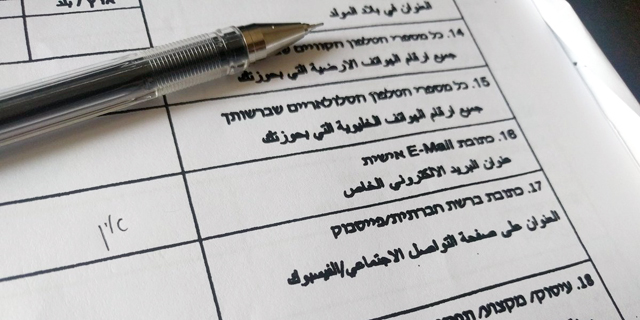 ארץ / בלד
العنوان في بلاد المولد
14. כל מספרי הטלפון הקוויים
جميع ارقام الهواتف الارضية التي بحوزتك
15. כל מספרי הטלפון הסלולאריים שברשותך
جميع ارقام الهواتف الخليوية التي بحوزتك
16. כתובת E-Mail אישית
عنوان البريد الالكتروني الخاص
17. כתובת ברשת חברתית/פייסבוק
العنوان على صفحة التواصل الاجتماعي/الفيسبوك
אין
18. עיסוק/ מקצוע/